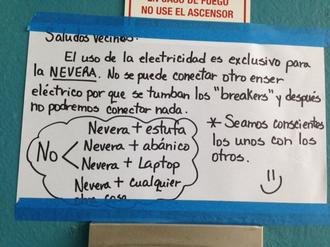 EN CASO DE FUEGO
NO USE EL ASCENSOR
Saludos vecinos:
El uso de la electricidad es exclusivo para
la NEVERA. No se puede conectar otro enser
eléctrico por que se tumban los "breakers" y después
no podremos conectar nada.
No <
Nevera + estufa
Nevera + abánico
Nevera + Laptop
Nevera + cualquier
otra cosa
* Seamos conscientes
los unos con los
otros.